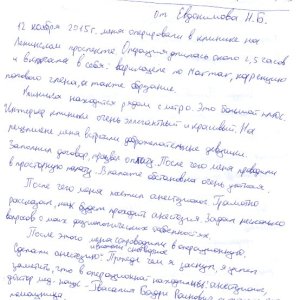 от Евдокимова Н.Б.
12 ноября 2015 г. меня оперировали в клинике на
Ленинском проспекте. Операция длилась около 1,5 часов
и включала в себя: варикоцеле по Мармар, коррекцию
полового члена, а также обрезание.
Клиника находится рядом с метро. Это большой плюс.
Интерьер клиники очень элегантный и красивый. На
рецепшене меня встретили доброжелательные девушки.
Заполнил договор, провел оплату. После чего меня проводили
в просторную палату. В палате обстановка очень уютная.
После чего меня посетил анестезиолог. Грамотно
рассказал, как будет проходить анестезия. Задал несколько
вопросов о моих физиологических особенностях.
После этого меня сопроводили в операционную,
сделали анестезию. Прежде чем я заснул, я успел
заметить, что в операционной находились: анестезиолог,
доктор мед. наук - Бадри
помощница.